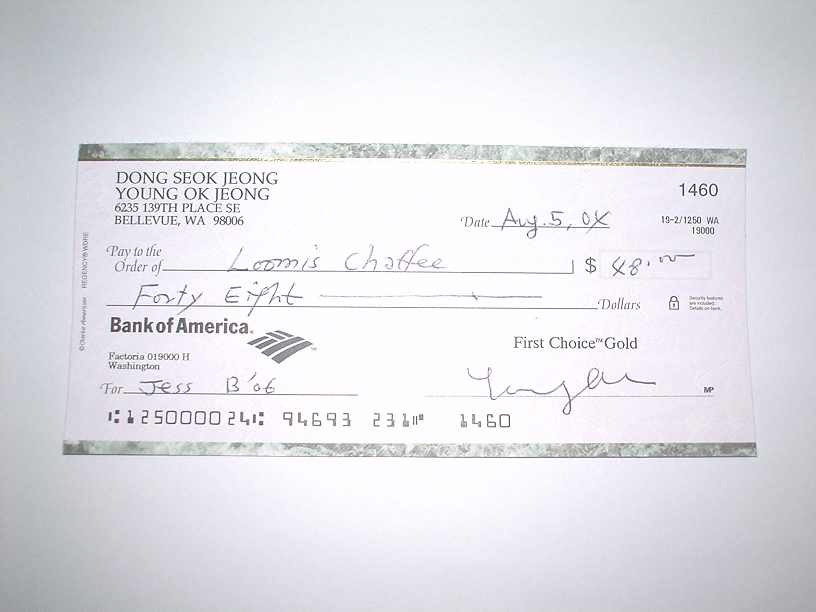 DONG SEOK JEONG
YOUNG OK JEONG
6235 139TH PLACE SE
BELLEVUE, WA 98006
1460
19-2/1250 WA
19000
Date Aug. 5, 04
Pay to the
Order of Loomis Chaffee $ 48.00
Forty Eight Dollars
Security features
are included.
Details on back.
Bank of America.
First Choice™ Gold
Factoria 019000 H
Washington
For Jess B'06
MP
⑆125000024⑆ 94693 231⑈ 1460